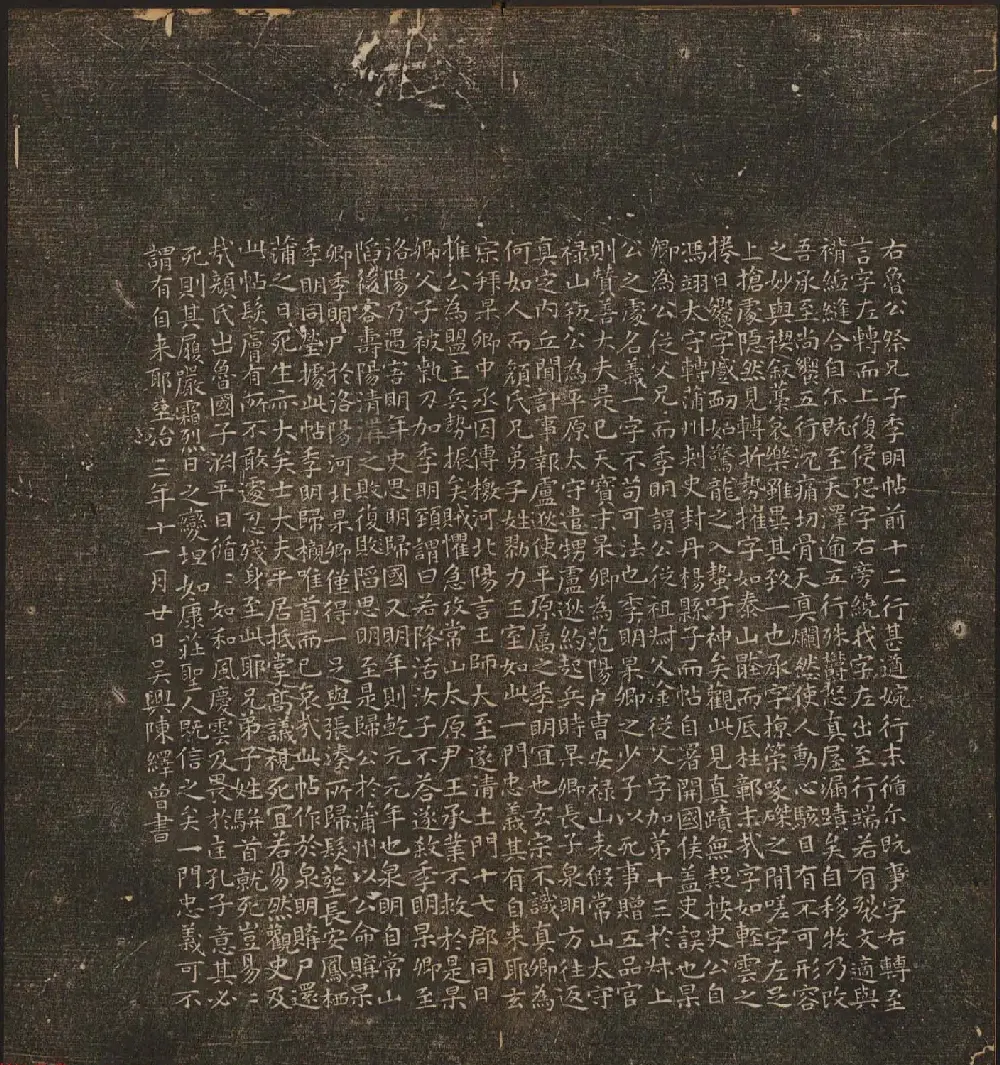 右魯公祭兄子季明帖前十二行甚遒婉行末循尓既事字右轉至
言字左轉而上復侵恐字右旁繞我字左出至行端若有裂文適與
褙縫合自尓既至天澤逾五行殊欝怒真屋漏蹟矣自移牧乃改
吾承至尚饗五行沉痛切骨天真爛然使人動心駭目有不可形容
之妙與禊敘藁哀樂雖異其致一也承字掠策啄磔之間嗟字左足
上搶處隱然見轉折勢摧字如泰山壓而底柱鄣末哉字如輕雲之
捲日饗字蹙如驚龍之入蟄吁神矣觀此見真蹟無疑按史公自
馮翊太守轉蒲州刾史封丹楊縣子而帖自署開國侯蓋史誤也杲
卿為公從父兄而季明謂公從祖州父唾從父字加第十三於州上
公之處名義一字不苟可法也季明杲卿之少子以死事贈五品官
則贊善大夫是已天寶末杲卿為范陽戶曹安祿山表假常山太守
祿山叛公為平原太守遣甥盧逖約起兵時杲卿長子泉明方往返
真定内丘間計事報盧逖使平原屬之季明宜也玄宗不識真卿為
何如人而顏氏兄弟子姓勠力王室如此一門忠義其有自来耶玄
宗拜杲卿中丞因傳檄河北陽言王師大至遂清土門十七郡同日
推公為盟主兵勢振矣賊懼急攻常山太原尹王承業不救於是杲
卿父子被執刀加季明頸謂曰若降活汝子不荅遂敘季明杲卿至
洛陽乃遇害明年史思明歸國又明年則乾元元年也泉明自常山
䧟後客壽陽清溝之敗復䧟思明至是歸公於蒲州以公命購杲
卿季明尸於洛陽河北杲卿僅得一足與張湊所歸髮塟長安鳳栖
季明同瑩據此帖季明歸櫬唯首而已哀哉此帖作於泉明購尸還
蒲之日死生亦大矣士大夫平居抵掌髙議視死宜若昜然觀史及
此帖髮膚有所不敢遽忍殘身至此耶兄弟子姓駢首就死豈昜〻
㢤顏氏出魯國子淵平日循〻如和風慶雲及畏於匡孔子意其必
死則其履嚴霜烈日之變坦如康莊聖人既信之矣一門忠義可不
謂有自来耶至治三年十一月廿日吳興陳繹曾書